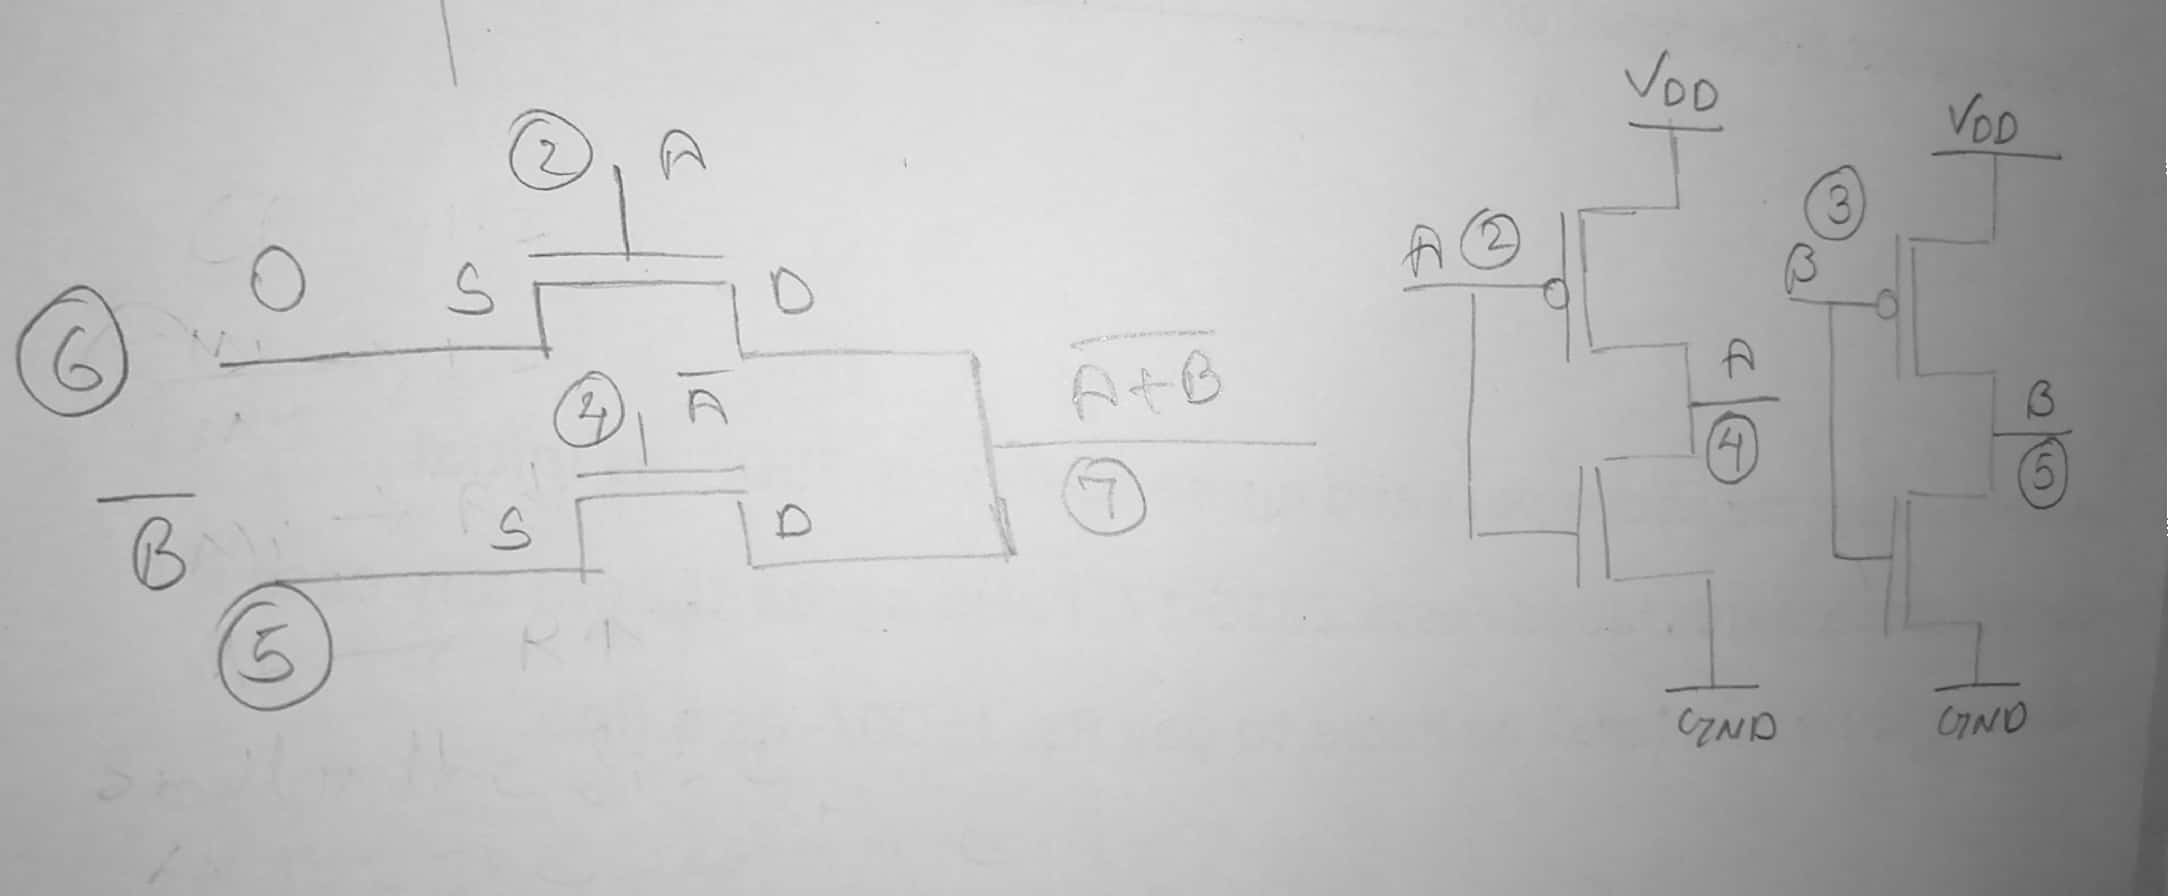 ② A
0 S D
⑥
④ A̅
B̅ S D
⑤
\overline{A+B}
⑦
VDD
A ②
A
④
GND
VDD
③
B
B
⑤
GND